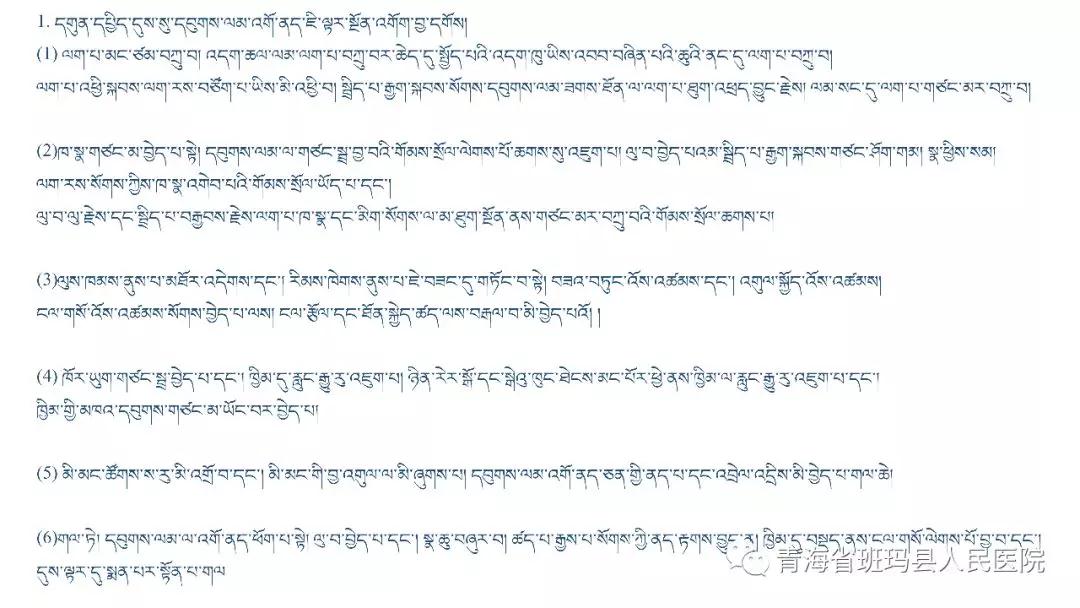 1. དགུན་དཔྱིད་དུས་སུ་དབུགས་ལམ་འགོ་ནད་ཇི་ལྟར་སྔོན་འགོག་བྱ་དགོས།
(1) ལག་པ་མང་ཙམ་བཀྲུ་བ། འདག་ཆལ་ལམ་ལག་པ་བཀྲུ་བར་ཆེད་དུ་སྤྱོད་པའི་འདག་ཁུ་ཡིས་འབབ་བཞིན་པའི་ཆུའི་ནང་དུ་ལག་པ་བཀྲུ་བ།
ལག་པ་འཕྱི་སྐབས་ལག་རས་བཙོག་པ་ཡིས་མི་འཕྱི་བ། སྦྲིད་པ་རྒྱག་སྐབས་སོགས་དབུགས་ལམ་ཟགས་ཐོན་ལ་ལག་པ་ཐུག་འཕྲད་བྱུང་རྗེས། ལམ་སང་དུ་ལག་པ་གཙང་མར་བཀྲུ་བ།
(2)ཁ་སྣ་གཙང་མ་བྱེད་པ་སྟེ། དབུགས་ལམ་ལ་གཙང་སྦྲ་བྱ་བའི་གོམས་སྲོལ་ལེགས་པོ་ཆགས་སུ་འཇུག་པ། ལུ་བ་བྱེད་པའམ་སྦྲིད་པ་རྒྱག་སྐབས་གཙང་ཤོག་གམ། སྣ་ཕྱིས་སམ།
ལག་རས་སོགས་ཀྱིས་ཁ་སྣ་འགེབ་པའི་གོམས་སྲོལ་ཡོད་པ་དང་།
ལུ་བ་ལུ་རྗེས་དང་སྦྲིད་པ་བརྒྱབས་རྗེས་ལག་པ་ཁ་སྣ་དང་མིག་སོགས་ལ་མ་ཐུག་སྔོན་ནས་གཙང་མར་བཀྲུ་བའི་གོམས་སྲོལ་ཆགས་པ།
(3)ལུས་ཁམས་ནུས་པ་མཐོར་འདེགས་དང་། རིམས་ཁེགས་ནུས་པ་ཇེ་བཟང་དུ་གཏོང་བ་སྟེ། བཟའ་བཏུང་འོས་འཚམས་དང་། འགུལ་སྐྱོད་འོས་འཚམས།
ངལ་གསོ་འོས་འཚམས་སོགས་བྱེད་པ་ལས། ངལ་རྩོལ་དང་ཐོན་སྐྱེད་ཚད་ལས་བརྒལ་བ་མི་བྱེད་པའོ། །
(4) ཁོར་ཡུག་གཙང་སྦྲ་བྱེད་པ་དང་། ཁྱིམ་དུ་རླུང་རྒྱུ་རུ་འཇུག་པ། ཉིན་རེར་སྒོ་དང་སྒེའུ་ཁུང་ཐེངས་མང་པོར་ཕྱེ་ནས་ཁྱིམ་ལ་རླུང་རྒྱུ་རུ་འཇུག་པ་དང་།
ཁྱིམ་གྱི་མཁའ་དབུགས་གཙང་མ་ཡོང་བར་བྱེད་པ།
(5) མི་མང་ཚོགས་ས་རུ་མི་འགྲོ་བ་དང་། མི་མང་གི་བྱ་འགུལ་ལ་མི་ཞུགས་པ། དབུགས་ལམ་འགོ་ནད་ཅན་གྱི་ནད་པ་དང་འབྲེལ་འདྲིས་མི་བྱེད་པ་གལ་ཆེ།
(6)གལ་ཏེ། དབུགས་ལམ་ལ་འགོ་ནད་ཕོག་པ་སྟེ། ལུ་བ་བྱེད་པ་དང་། སྣ་ཆུ་བཞུར་བ། ཚད་པ་རྒྱས་པ་སོགས་ཀྱི་ནད་རྟགས་བྱུང་ན། ཁྱིམ་དུ་བསྡད་ནས་ངལ་གསོ་ལེགས་པོ་བྱ་བ་དང་།
དུས་ལྟར་དུ་སྨན་པར་སྟོན་པ་གལ
青海省班玛县人民医院